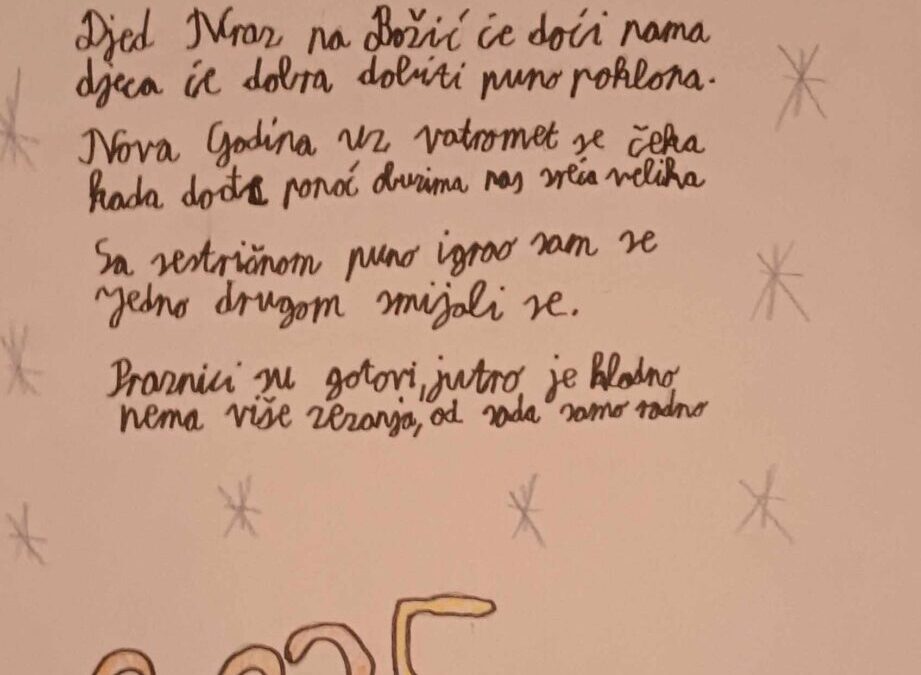 Djed Mraz na Božić će doći nama
djeca će dobra dobiti puno poklona.
Nova Godina uz vatromet se čeka
kada dođe ponoć obuzima nas sreća velika
Sa sestričnom puno igrao sam se
jedno drugom smijali se.
Praznici su gotovi, jutro je hladno
nema više zezanja, od sada samo radno
2025